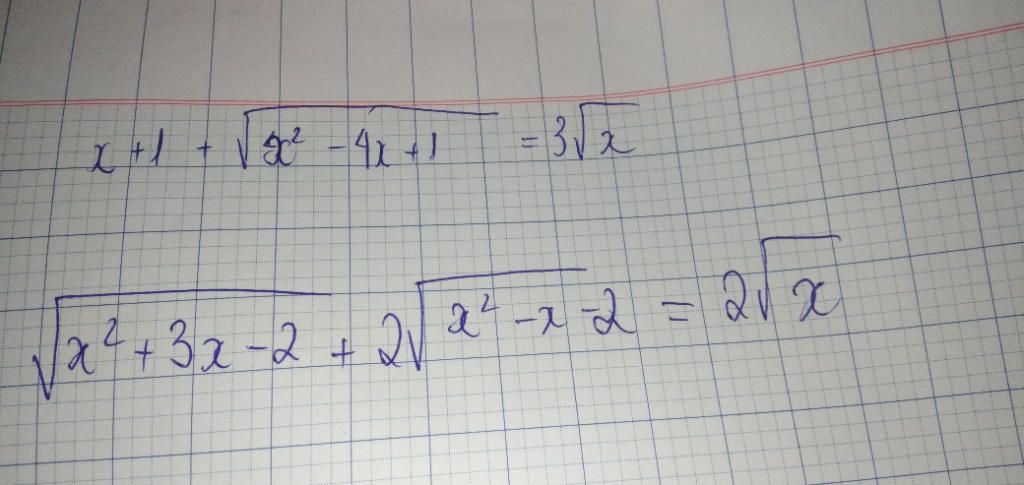 x + 1 + √(x² - 4x + 1) = 3√x
√(x² + 3x - 2) + 2√(x² - x) - 2 = 2√x